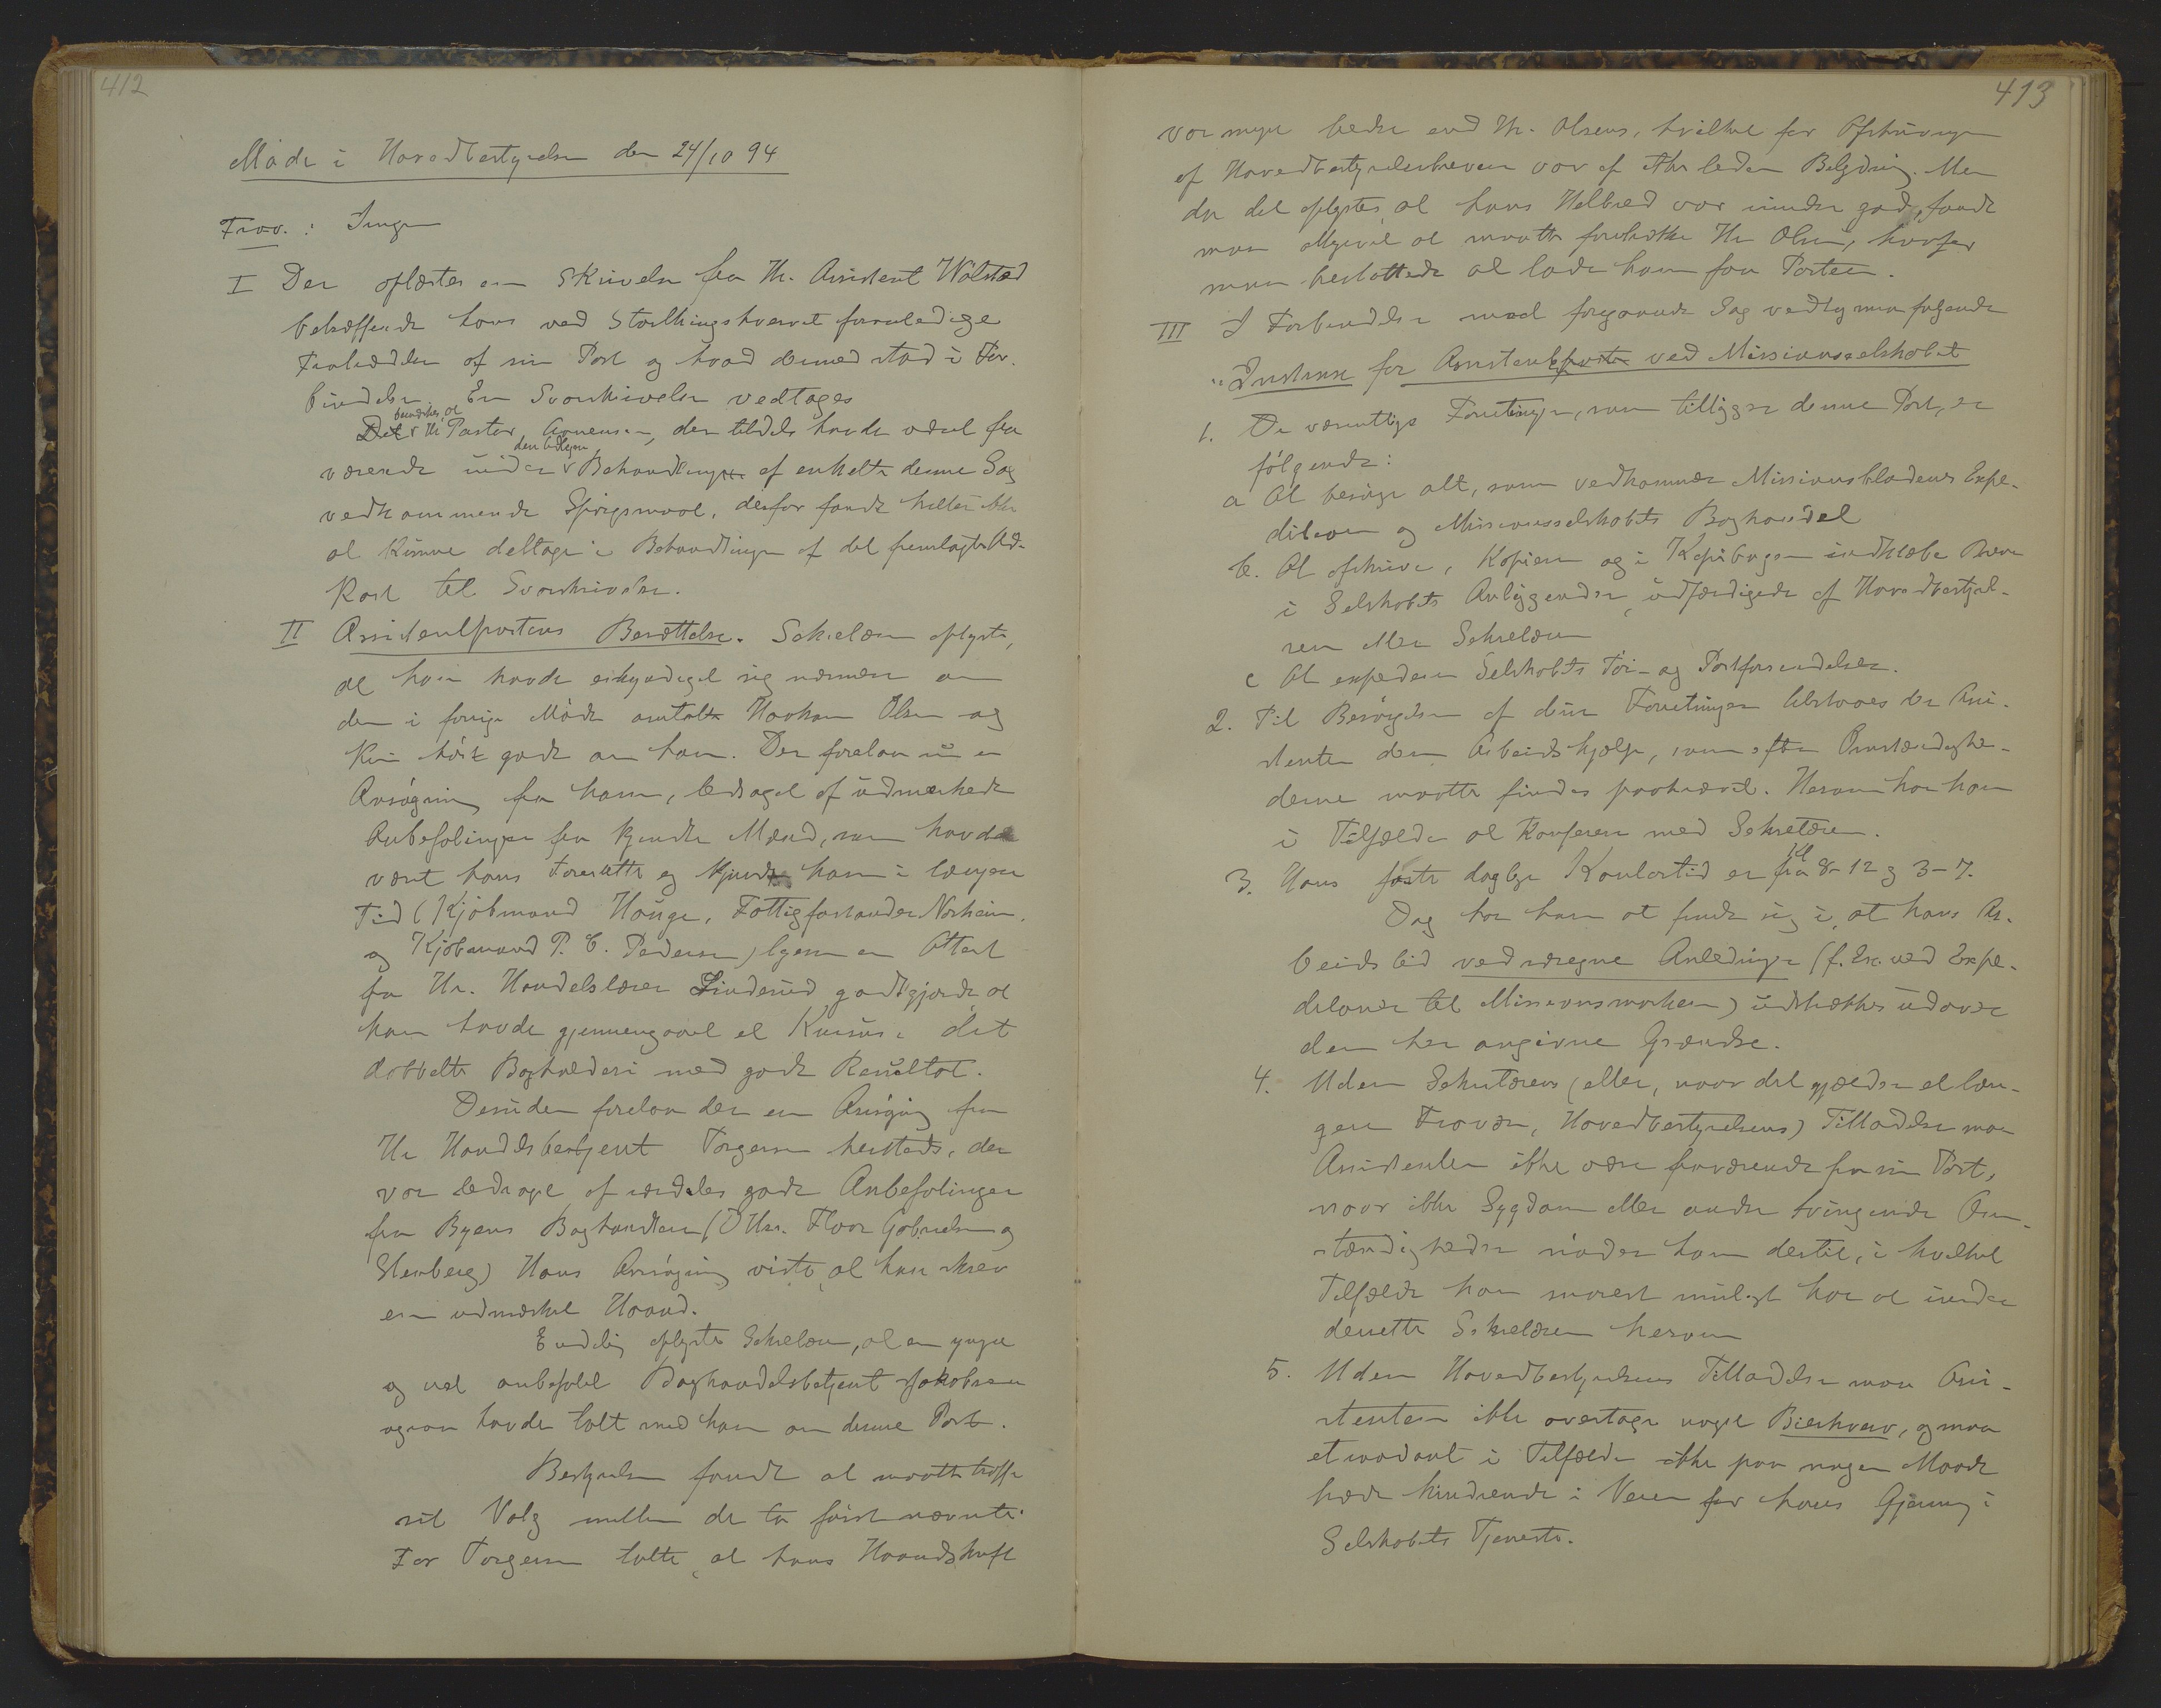 412
Møde i Hovedbestyrelsen den 24/10 94
Frav.: Ingen
I Der oplæstes en Skrivelse fra Hr. Assistent Wølstad
betræffende hans ved Storthingshvervet foranledige
Fratrædelse af sin Post og hvad dermed stod i For-
bindelse. En Svarskrivelse vedtages
bemærkes, at
Det Hr Pastor Aanensen, der tildels havde været fra
den tidligere
værende under Behandlingen af enkelte denne Sag
vedkommende Spørgsmaal, derfor fandt heller ikke
at kunne deltage i Behandlingen af det fremlagte Ud-
kast til Svarskrivelse.
II Assistentpostens Besættelse. Sekretæren oplyste,
at han havde erkyndiget sig nærmere om
den i forrige Møde omtalte Haakon Olsen og
kun hørt godt om ham. Der forelaa nu en
Ansøgning fra ham, ledsaget af udmærkede
Anbefalinger fra kjendte Mænd, som havde
været hans Foresatte og kjendt ham i længere
Tid (Kjøbmand Hauge, Fattigforstander Norheim,
og Kjøbmand P. C. Pedersen) ligesom en Attest
fra Hr. Handelslærer Linderud godtgjorde, at
han havde gjennemgaaet et Kursus i det
dobbelte Bogholderi med godt Resultat.
Desuden forelaa der en Ansøgning fra
Hr Handelsbetjent Torgersen hersteds, der
var ledsaget af særdeles gode Anbefalinger
fra Byens Boghandlere (DHrr. Floor Gabrielsen og
Stenberg) Hans Ansøgning viste, at han skrev
en udmærket Haand.
Endelig oplyste Sekretæren, at en yngre
og vel anbefalet Boghandelsbetjent Jakobsen
ogsaa havde talt med ham om denne Post.
Bestyrelsen fandt at maatte træffe
sit Valg mellem de to først nævnte.
For Torgersen talte, at hans Haandskrift
413
var meget bedre end Hr. Olsens, hvilket for Afskrivningen
af Hovedbestyrelsesbreven var af ikke liden Betydning. Men
da det oplystes, at hans Helbred var mindre god, fandt
man alligevel at maatte foretrække Hr Olsen, hvorfor
man besluttede at lade ham faa Posten.
III I Forbindelse med foregaaende Sag vedtog man følgende
"Instrux for Assistentposten ved Missionsselskabet
1. De væsentlige Forretninger, som tilligger denne Post, er
følgende:
a At besørge alt, som vedkommer Missionsbladenes Expe-
dition og Missionsselskabets Boghandel
b. At afskrive, kopiere og i Kopibogen indklæbe Breve
i Selskabets Anliggender, udfærdigede af Hovedbestyrel-
sen eller Sekretæren
c At expedere Selskabets Tøi- og Postforsendelser.
2. Til Besørgelsen af disse Forretninger tilstaaes der Assi-
stenten den Arbeidshjælp, som efter Omstændighe-
derne maatte findes paakrævet. Herom har han
i Tilfælde at konferere med Sekretæren.
3. Hans faste daglige Kontortid er fra Kl 8-12 og 3-7.
Dog har han at finde sig i, at hans Ar-
beidstid ved særegne Anledninger (f. Ex. ved Expe-
ditioner til Missionsmarken) udstrækkes udover
den her angivne Grændse.
4. Uden Sekretærens (eller, naar det gjælder et læn-
gere Fravær, Hovedbestyrelsens) Tilladelse maa
Assistenten ikke være fraværende fra sin Post,
naar ikke Sygdom eller andre tvingende Om-
stændigheder nøder ham dertil, i hvilket
Tilfælde han snarest muligt har at under
derrette Sekretæren herom
5. Uden Hovedbestyrelsens Tilladelse maa Assi-
stenten ikke overtage noget Bierhverv, og maa
et saadant i Tilfælde ikke paa nogen Maade
træde hindrende i Veien for hans Gjerning i
Selskabets Tjeneste.